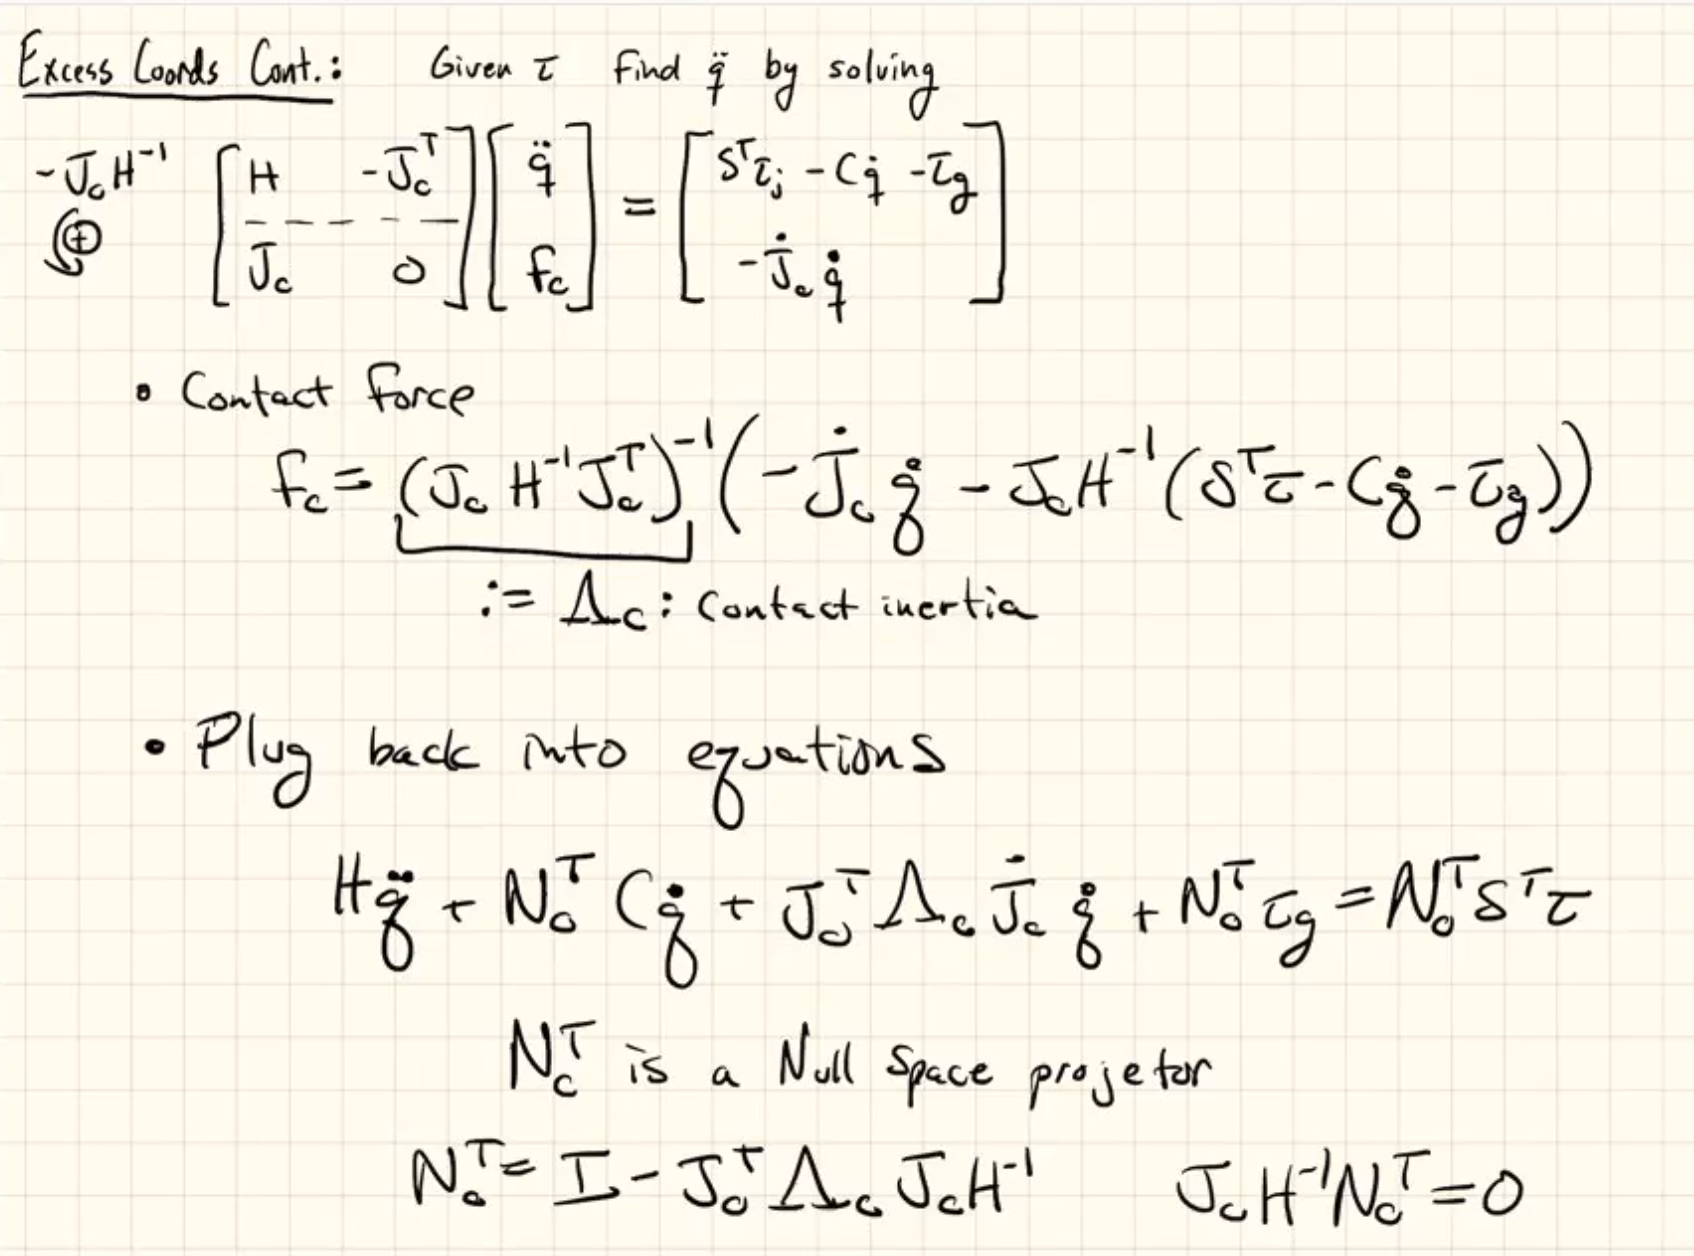 Excess Coords Cont.: Given τ find q̈ by solving
-J_c H⁻¹ ⊕ [H -J_cᵀ; J_c 0] [q̈; f_c] = [Sᵀτ_j - Cq̇ - τ_g; -J̇_c q̇]
• Contact force
f_c = (J_c H⁻¹ J_cᵀ)⁻¹ (-J̇_c q̇ - J_c H⁻¹ (Sᵀτ - Cq̇ - τ_g))
:= Λ_c : Contact inertia
• Plug back into equations
Hq̈ + N_cᵀ Cq̇ + J_cᵀ Λ_c J̇_c q̇ + N_cᵀ τ_g = N_cᵀ Sᵀ τ
N_cᵀ is a Null Space projetor
N_cᵀ = I - J_cᵀ Λ_c J_c H⁻¹ J_c H⁻¹ N_cᵀ = 0